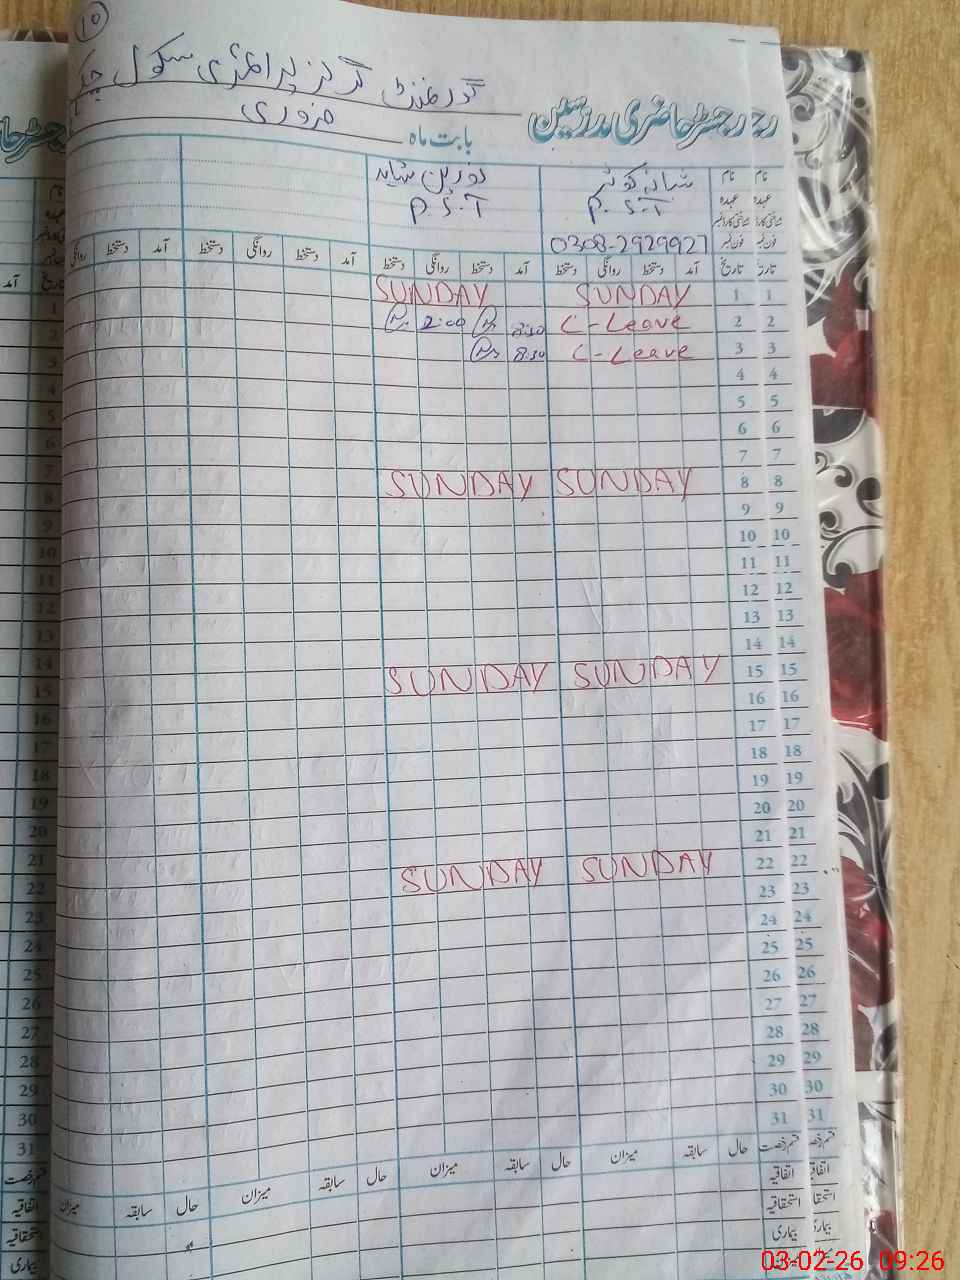 ۱۰
گورنمنٹ گرلز پرائمری سکول چک
رجسٹر حاضری مدرسین
بابت ماہ فروری
نام شبانہ کوثر نورین شاہد
عہدہ P.S.T P.S.T
فون نمبر 0308-2929927
تاریخ آمد دستخط روانگی دستخط آمد دستخط روانگی دستخط آمد دستخط روانگی دستخط آمد دستخط روانگی
1 1 SUNDAY SUNDAY
2 2 C-Leave 8:30 2:00
3 3 C-Leave 8:30
4 4
5 5
6 6
7 7
8 8 SUNDAY SUNDAY
9 9
10 10
11 11
12 12
13 13
14 14
15 15 SUNDAY SUNDAY
16 16
17 17
18 18
19 19
20 20
21 21
22 22 SUNDAY SUNDAY
23 23
24 24
25 25
26 26
27 27
28 28
29 29
30 30
31 31
قسم رخصت حال سابقہ میزان حال سابقہ میزان حال سابقہ میزان حال سابقہ میزان
اتفاقیہ
استحقاقیہ
بیماری
میزان
03-02-26 09:26